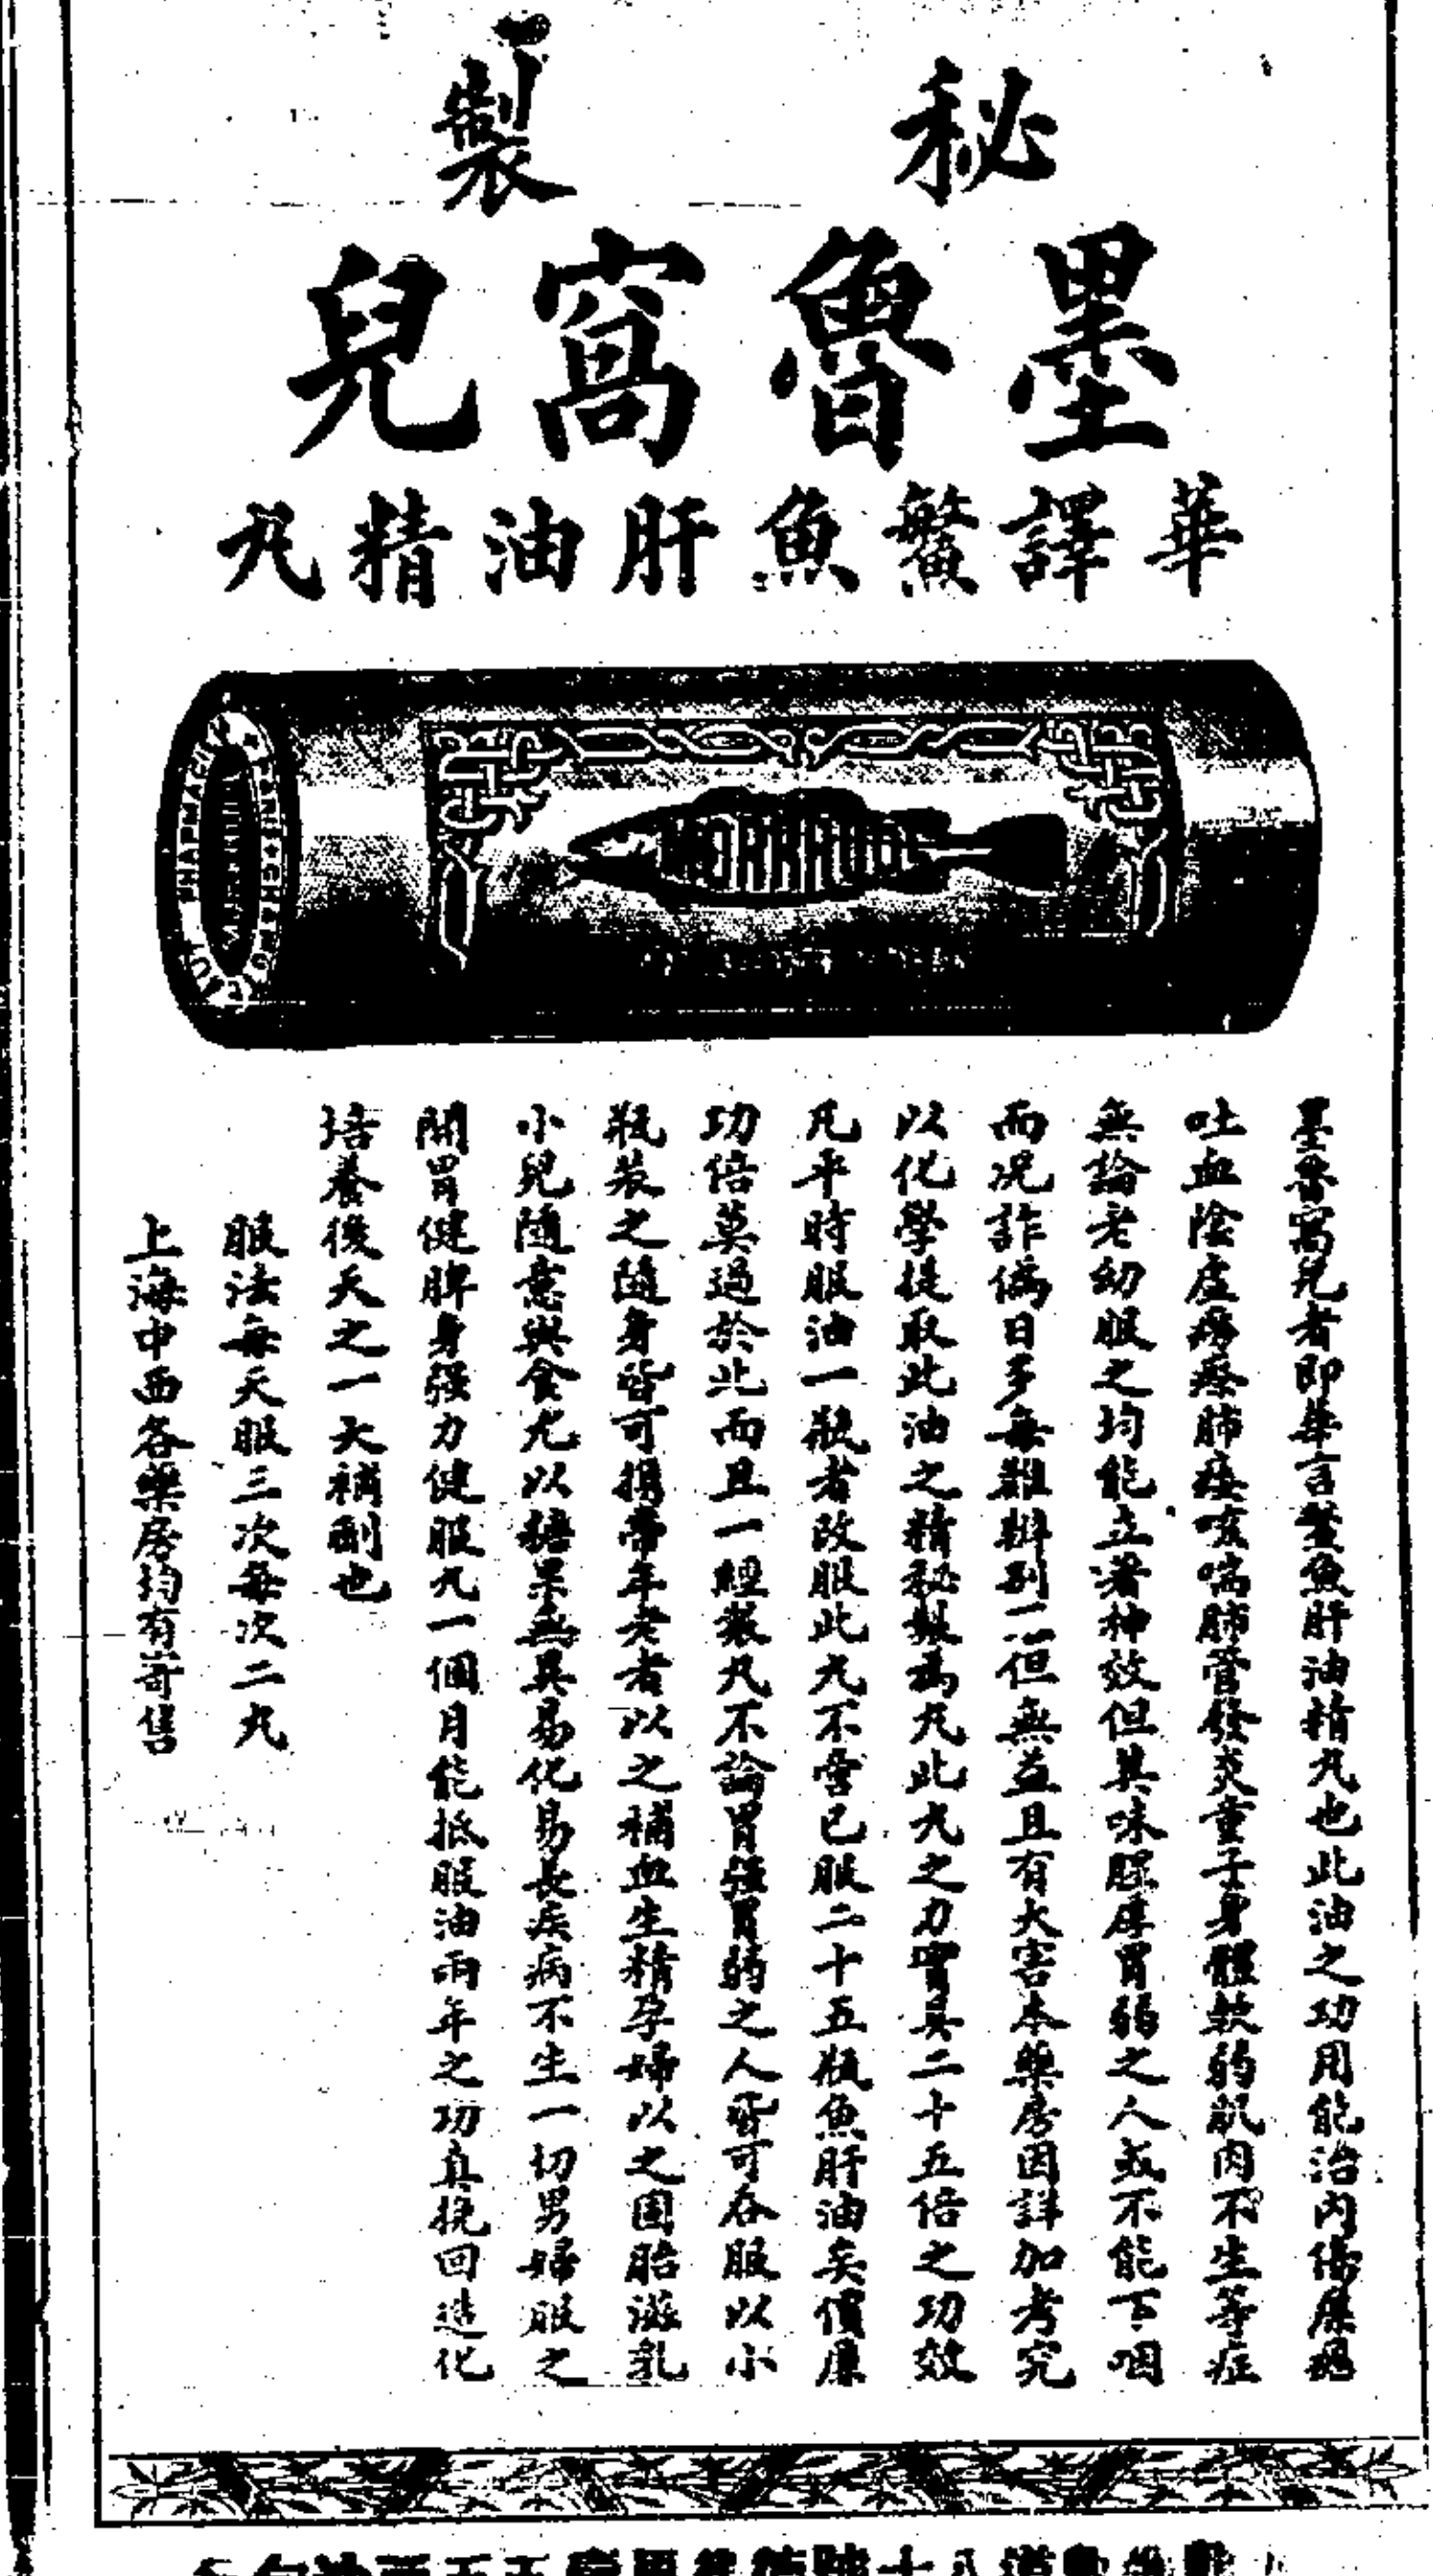 秘製
墨魯窩兒
華譯鱉魚肝油精丸
MORRHUOL
墨魯窩兒者即華言鱉魚肝油精丸也此油之功用能治內傷
吐血陰虛癆瘵肺痿咳喘肺管發炎童子身體軟弱肌肉不生等症
無論老幼服之均能立著神效但其味腥厚胃弱之人或不能下咽
而况詐偽日多每難辦別不但無益且有大害本藥房因詳加考究
以化學提取此油之精秘製為丸此丸之力實具二十五倍之功效
凡平時服油一瓶者改服此丸不啻已服二十五瓶魚肝油矣價廉
功倍莫過於此而且一經製丸不論胃强胃弱之人皆可吞服以小
瓶裝之隨身皆可攜帶年老者以之補血生精孕婦以之固胎滋乳
小兒隨意與食尤以糖菓無異易化易長疾病不生一切男婦服之
開胃健脾身强力健服丸一個月能抵服油兩年之功真挽回造化
培養後天之一大補劑也
服法每天服三次每次二丸
上海中西各藥房均有寄售